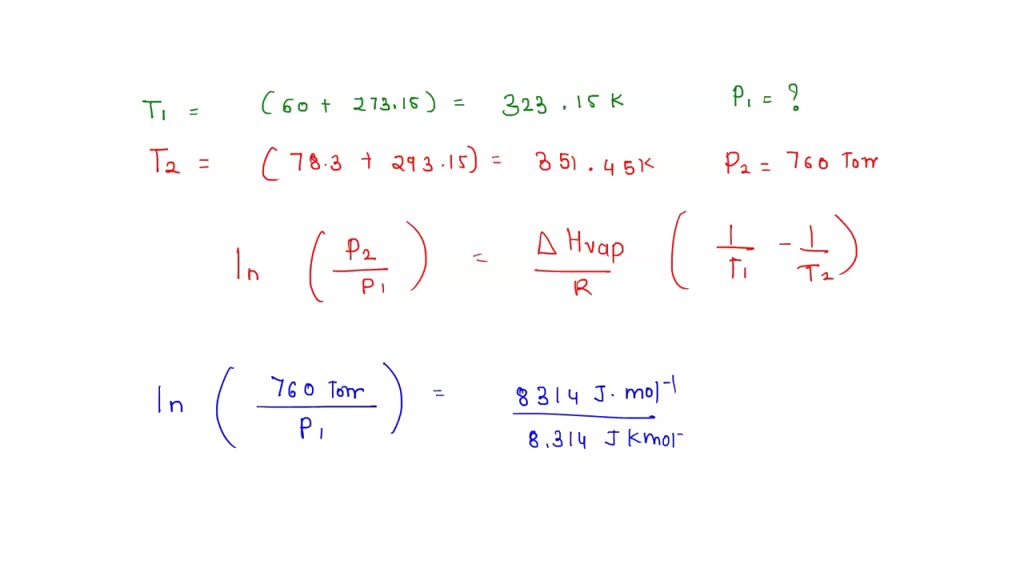 T₁ = (60 + 273.15) = 323.15 K P₁ = ?
T₂ = (78.3 + 293.15) = 351.45K P₂ = 760 Torr
ln (P₂/P₁) = ΔHvap/R (1/T₁ - 1/T₂)
ln (760 Torr/P₁) = 8314 J.mol⁻¹/8.314 J Kmol⁻